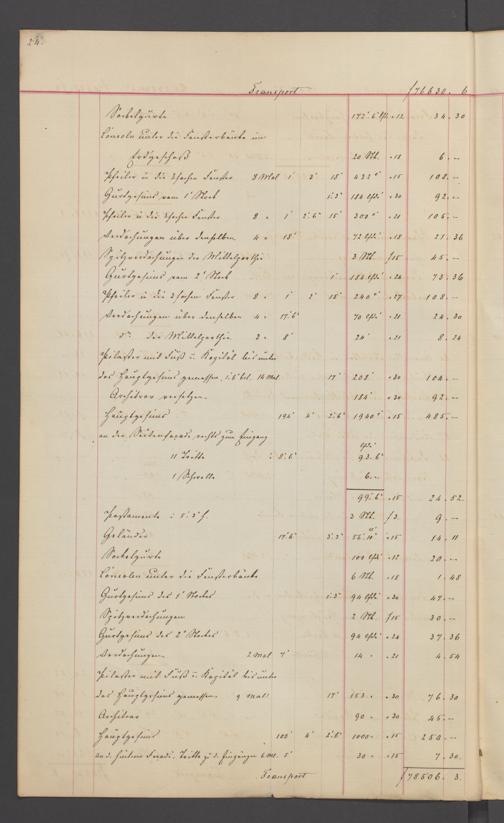 24.
Transport f 76630. 6
Sockelgurte 172' 6 lfd. " 12 34. 30
Consolen unter die Fensterbänke im
Erdgeschoß 20 Stk. " 18 6. --
Pfeiler u die 3fachen Fenster 8 Mal 1' 3' 18' 432□' " 15 108. --
Gurtgesims vom 1' Stock 1.5" 184 lfd. " 30 92. --
Pfeiler u die 3fachen Fenster 8 " 1' 2'.6" 15' 300□' " 21 105. --
Verdachungen über denselben 4 " 18' 72 lfd. " 18 21. 36
Spitzverdachungen der Mittelparthie 3 Stk. f 15 45. --
Gurtgesims vom 2' Stock 1' 184 lfd. " 24 73. 36
Pfeiler u die 3fachen Fenster 8 " 1' 2' 15' 240□' " 27 108. --
Verdachungen über denselben 4 " 17'.6" 70 lfd. " 21 24. 30
do. der Mittelparthie 3 " 8' 24' " 21 8. 24
Pilaster mit Fuß u. Kapitäl bis unter
das Hauptgesims gemessen 17' 208' " 30 104. --
Architrav versetzen 184' " 30 92. --
Hauptgesims 194' 4' 2'.6" 1940' " 15 485. --
an der Seitenfaçade rechts zum Eingang
11 Tritte : 8'.6" 93. 6"
1 Schwelle 6. --
99'.6" " 15 24. 52
Postamente : 5'. 3 h. 3 Stk. f 3 9. --
Geländer 17'.6" 3'.3" 56'. 10" " 15 14. 11
Sockelgurte 100 lfd. " 12 20. --
Consolen unter die Fensterbänke 6 Stk. " 18 1. 48
Gurtgesims des 1' Stockes 1.5" 94 lfd. " 30 47. --
Spitzverdachungen 2 Stk. f 15 30. --
Gurtgesims des 2' Stockes 94 lfd. " 24 37. 36
Verdachungen 2 Mal 7' 14 " " 21 4. 54
Pilaster mit Fuß u. Kapitäl bis unter
das Hauptgesims gemessen 9 Mal 17' 153. " " 30 76. 30
Architrav 90 " " 30 45. --
Hauptgesims 100' 4' 2'.6" 1000. " " 15 250. --
an d. hintern Façade. Tritte zu d. Eingängen 6 Mt. 5' 30 " " 15 7. 30
Transport f 78506. 3.